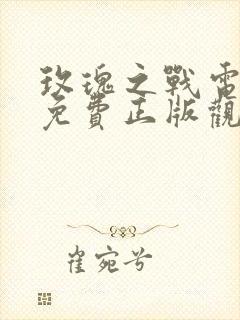 玫瑰之戰電
免費正版觀
崔宛兮